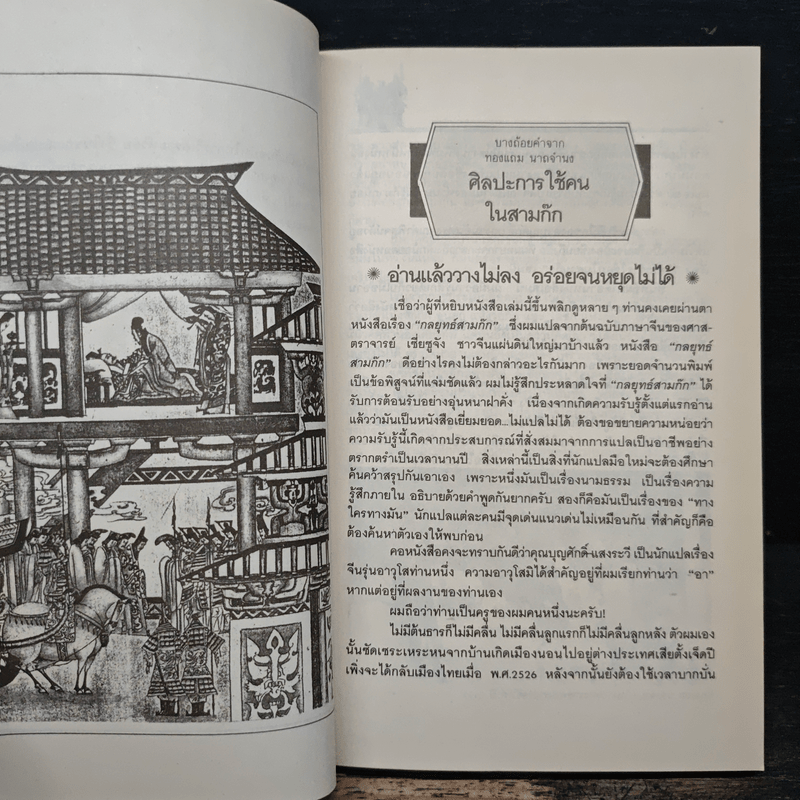 บางถ้อยคำจาก
ทองแถม นาถจำนง
ศิลปะการใช้คน
ในสามก๊ก
อ่านแล้ววางไม่ลง อร่อยจนหยุดไม่ได้
เชื่อว่าผู้ที่หยิบหนังสือเล่มนี้ขึ้นพลิกดูหลาย ๆ ท่านคงเคยผ่านตา
หนังสือเรื่อง “กลยุทธ์สามก๊ก” ซึ่งผมแปลจากต้นฉบับภาษาจีนของศาส-
ตราจารย์ เซี่ยชูจัง ชาวจีนแผ่นดินใหญ่มาบ้างแล้ว หนังสือ “กลยุทธ์
สามก๊ก” ดีอย่างไรคงไม่ต้องกล่าวอะไรกันมาก เพราะยอดจำนวนพิมพ์
เป็นข้อพิสูจน์ที่แจ่มชัดแล้ว ผมไม่รู้สึกประหลาดใจที่ “กลยุทธ์สามก๊ก” ได้
รับการต้อนรับอย่างอุ่นหนาฝาคั่ง เนื่องจากเกิดความรับรู้ตั้งแต่แรกอ่าน
แล้วว่ามันเป็นหนังสือเยี่ยมยอด...ไม่แปลไม่ได้ ต้องขอขยายความหน่อยว่า
ความรับรู้นี้เกิดจากประสบการณ์ที่สั่งสมมาจากการแปลเป็นอาชีพอย่าง
ตรากตรำเป็นเวลานานปี สิ่งเหล่านี้เป็นสิ่งที่นักแปลมือใหม่จะต้องศึกษา
ค้นคว้าสรุปกันเอาเอง เพราะหนึ่งมันเป็นเรื่องนามธรรม เป็นเรื่องความ
รู้สึกภายใน อธิบายด้วยคำพูดกันยากครับ สองก็คือมันเป็นเรื่องของ “ทาง
ใครทางมัน” นักแปลแต่ละคนมีจุดเด่นแนวเด่นไม่เหมือนกัน ที่สำคัญก็คือ
ต้องค้นหาตัวเองให้พบก่อน
คอหนังสือคงจะทราบกันดีว่าคุณบุญศักดิ์-แสงระวี เป็นนักแปลเรื่อง
จีนรุ่นอาวุโสท่านหนึ่ง ความอาวุโสมิได้สำคัญอยู่ที่ผมเรียกท่านว่า “อา”
หากแต่อยู่ที่ผลงานของท่านเอง
ผมถือว่าท่านเป็นครูของผมคนหนึ่งนะครับ!
ไม่มีต้นธารก็ไม่มีคลื่น ไม่มีคลื่นลูกแรกก็ไม่มีคลื่นลูกหลัง ตัวผมเอง
นั้นซัดเซระเหระหนจากบ้านเกิดเมืองนอนไปอยู่ต่างประเทศเสียตั้งเจ็ดปี
เพิ่งจะได้กลับเมืองไทยเมื่อ พ.ศ.2526 หลังจากนั้นยังต้องใช้เวลาบากบั่น